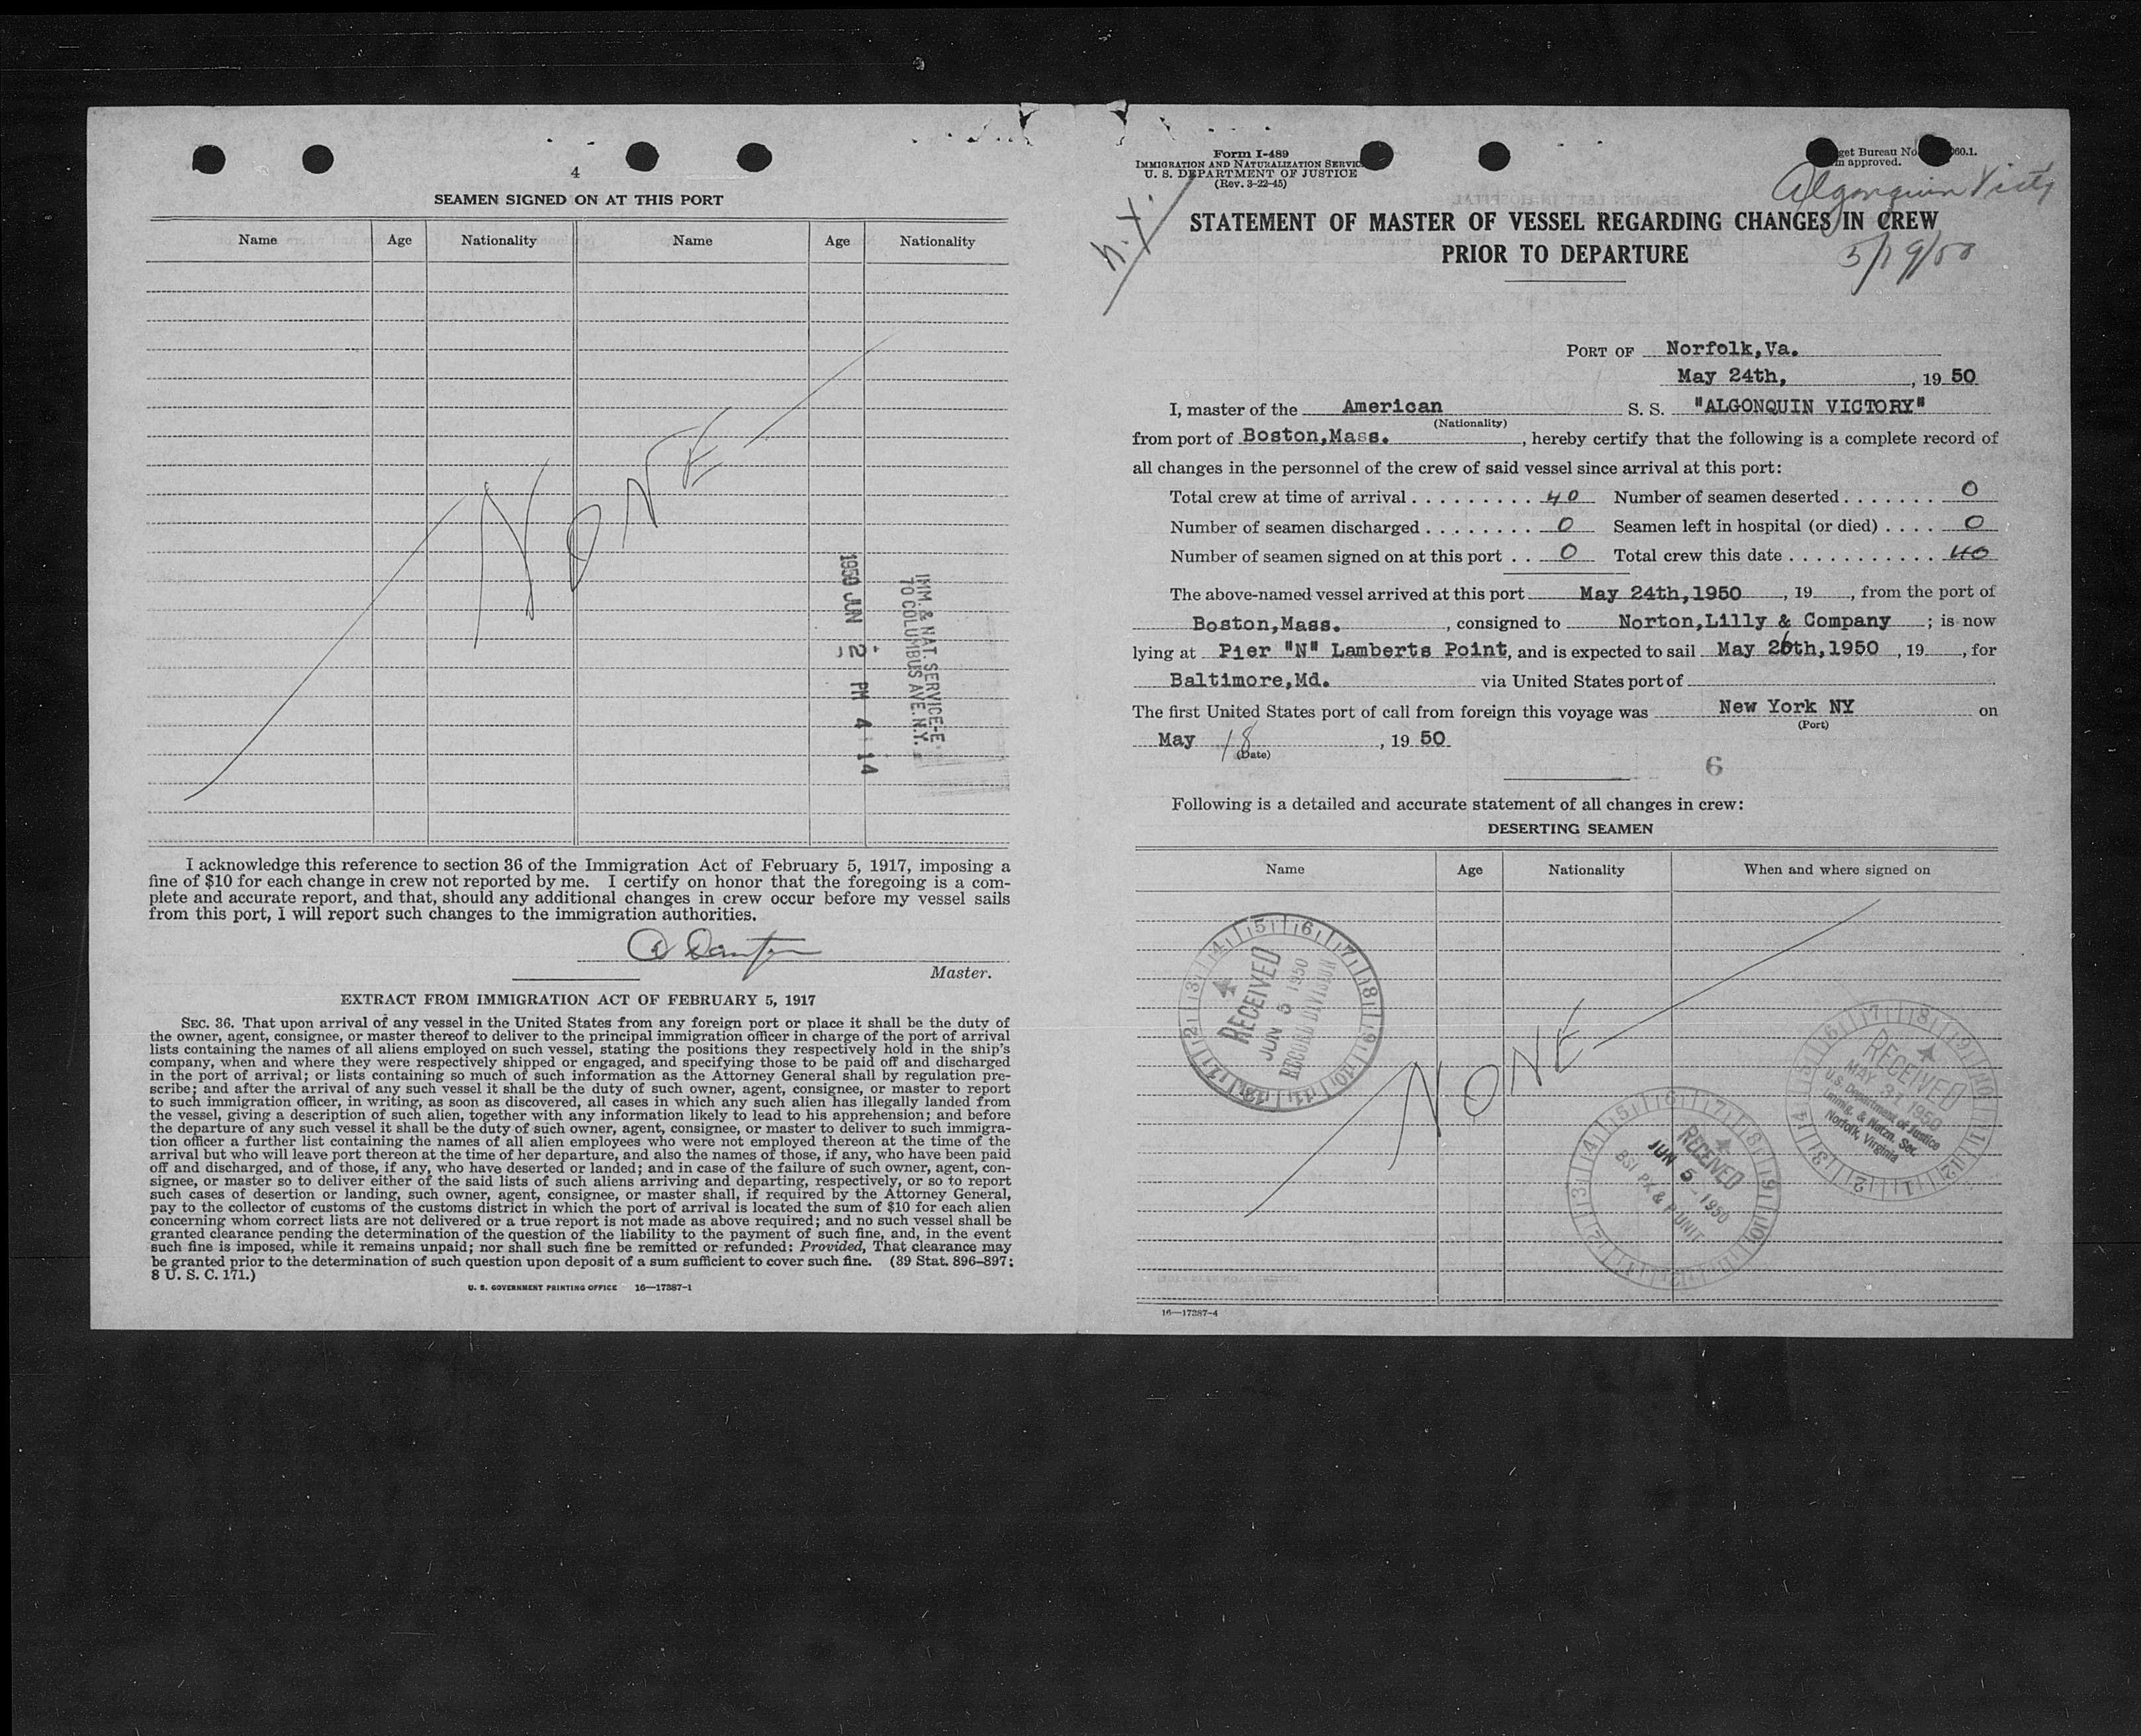 4
SEAMEN SIGNED ON AT THIS PORT
Name Age Nationality Name Age Nationality
NONE
1950 JUN 2 PM 4 14
IMM. & NAT. SERVICE-E
70 COLUMBUS AVE. N.Y.
I acknowledge this reference to section 36 of the Immigration Act of February 5, 1917, imposing a
fine of $10 for each change in crew not reported by me. I certify on honor that the foregoing is a com-
plete and accurate report, and that, should any additional changes in crew occur before my vessel sails
from this port, I will report such changes to the immigration authorities.
Master.
EXTRACT FROM IMMIGRATION ACT OF FEBRUARY 5, 1917
SEC. 36. That upon arrival of any vessel in the United States from any foreign port or place it shall be the duty of
the owner, agent, consignee, or master thereof to deliver to the principal immigration officer in charge of the port of arrival
lists containing the names of all aliens employed on such vessel, stating the positions they respectively hold in the ship's
company, when and where they were respectively shipped or engaged, and specifying those to be paid off and discharged
in the port of arrival; or lists containing so much of such information as the Attorney General shall by regulation pre-
scribe; and after the arrival of any such vessel it shall be the duty of such owner, agent, consignee, or master to report
to such immigration officer, in writing, as soon as discovered, all cases in which any such alien has illegally landed from
the vessel, giving a description of such alien, together with any information likely to lead to his apprehension; and before
the departure of any such vessel it shall be the duty of such owner, agent, consignee, or master to deliver to such immigra-
tion officer a further list containing the names of all alien employees who were not employed thereon at the time of the
arrival but who will leave port thereon at the time of her departure, and also the names of those, if any, who have been paid
off and discharged, and of those, if any, who have deserted or landed; and in case of the failure of such owner, agent, con-
signee, or master so to deliver either of the said lists of such aliens arriving and departing, respectively, or so to report
such cases of desertion or landing, such owner, agent, consignee, or master shall, if required by the Attorney General,
pay to the collector of customs of the customs district in which the port of arrival is located the sum of $10 for each alien
concerning whom correct lists are not delivered or a true report is not made as above required; and no such vessel shall be
granted clearance pending the determination of the question of the liability to the payment of such fine, and, in the event
such fine is imposed, while it remains unpaid; nor shall such fine be remitted or refunded: Provided, That clearance may
be granted prior to the determination of such question upon deposit of a sum sufficient to cover such fine. (39 Stat. 896-897;
8 U. S. C. 171.)
U. S. GOVERNMENT PRINTING OFFICE 16—17387-1
Form I-489
IMMIGRATION AND NATURALIZATION SERVICE
U. S. DEPARTMENT OF JUSTICE
(Rev. 3-22-45)
get Bureau No. 60.1.
approved.
N.Y.
Algonquin Victy
5/19/50
STATEMENT OF MASTER OF VESSEL REGARDING CHANGES IN CREW
PRIOR TO DEPARTURE
PORT OF Norfolk,Va.
May 24th, , 19 50
I, master of the American S. S. "ALGONQUIN VICTORY"
(Nationality)
from port of Boston,Mass. , hereby certify that the following is a complete record of
all changes in the personnel of the crew of said vessel since arrival at this port:
Total crew at time of arrival . . . . . . . . . 40 Number of seamen deserted . . . . . . . 0
Number of seamen discharged . . . . . . . . 0 Seamen left in hospital (or died) . . . . 0
Number of seamen signed on at this port . . 0 Total crew this date . . . . . . . . . . . . 40
The above-named vessel arrived at this port May 24th,1950 , 19 , from the port of
Boston,Mass. , consigned to Norton,Lilly & Company ; is now
lying at Pier "N" Lamberts Point, and is expected to sail May 26th,1950 , 19 , for
Baltimore,Md. via United States port of
The first United States port of call from foreign this voyage was New York NY on
(Port)
May 18 , 19 50
(Date)
6
Following is a detailed and accurate statement of all changes in crew:
DESERTING SEAMEN
Name Age Nationality When and where signed on
NONE
RECEIVED
JUN 5 1950
RECORD DIVISION
RECEIVED
JUN 5 - 1950
RECEIVED
MAY 31 1950
U.S. Department of Justice
Immig. & Natzn. Ser.
Norfolk, Virginia
16—17387-4